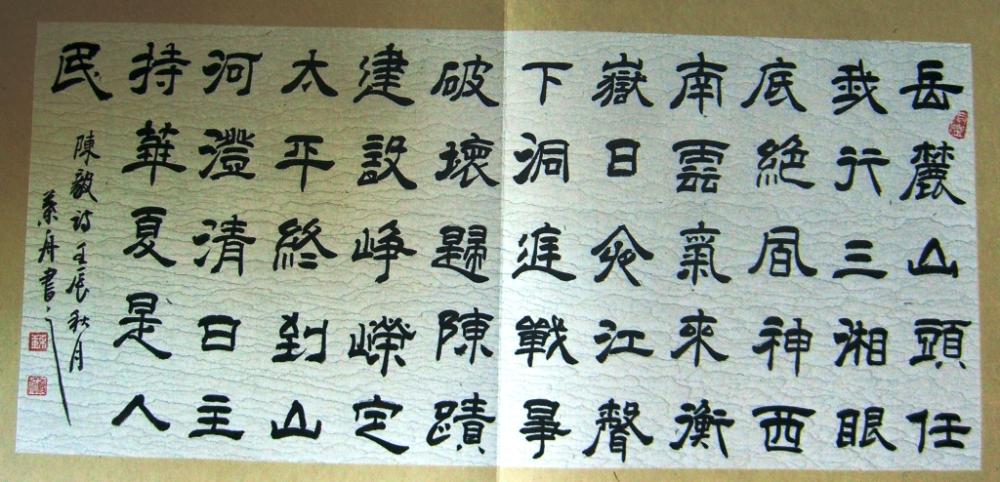 岳麓山頭任
我行三湘眼
底絶風神西
南雲氣來衡
嶽日夜江聲
下洞庭戰事
破壞歸陳蹟
建設崢嶸定
太平終到山
河澄清日主
持華夏是人
民
陳毅詩壬辰秋月
葉舟書